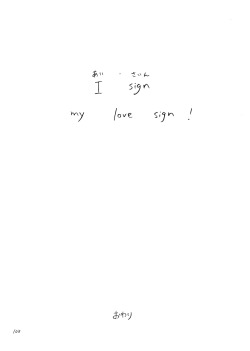 あい・さいん
I sign
my love sign !
おわり